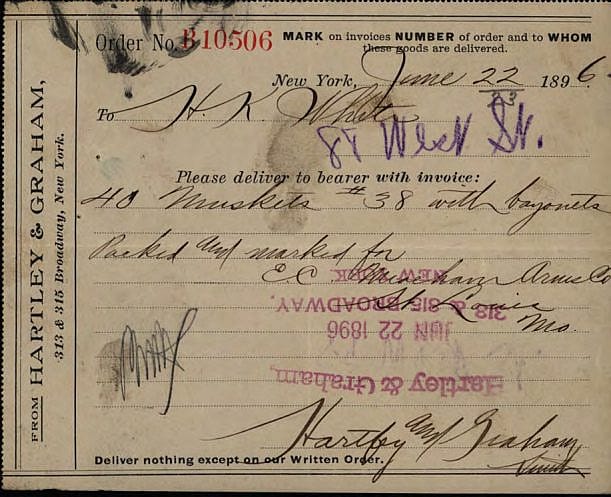 FROM HARTLEY & GRAHAM,
313 & 315 Broadway, New York.
Order No. B10506
MARK on invoices NUMBER of order and to WHOM
these goods are delivered.
New York, June 22 1896.
23
To H. K. White
84 West St.
Please deliver to bearer with invoice:
40 Muskets #38 with bayonets
Packed and marked for
E.C. Meacham Arms Co
St. Louis
Mo.
Hartley & Graham,
JUN 22 1896
313 & 315 BROADWAY,
NEW YORK
Hartley and Graham
Deliver nothing except on our Written Order.